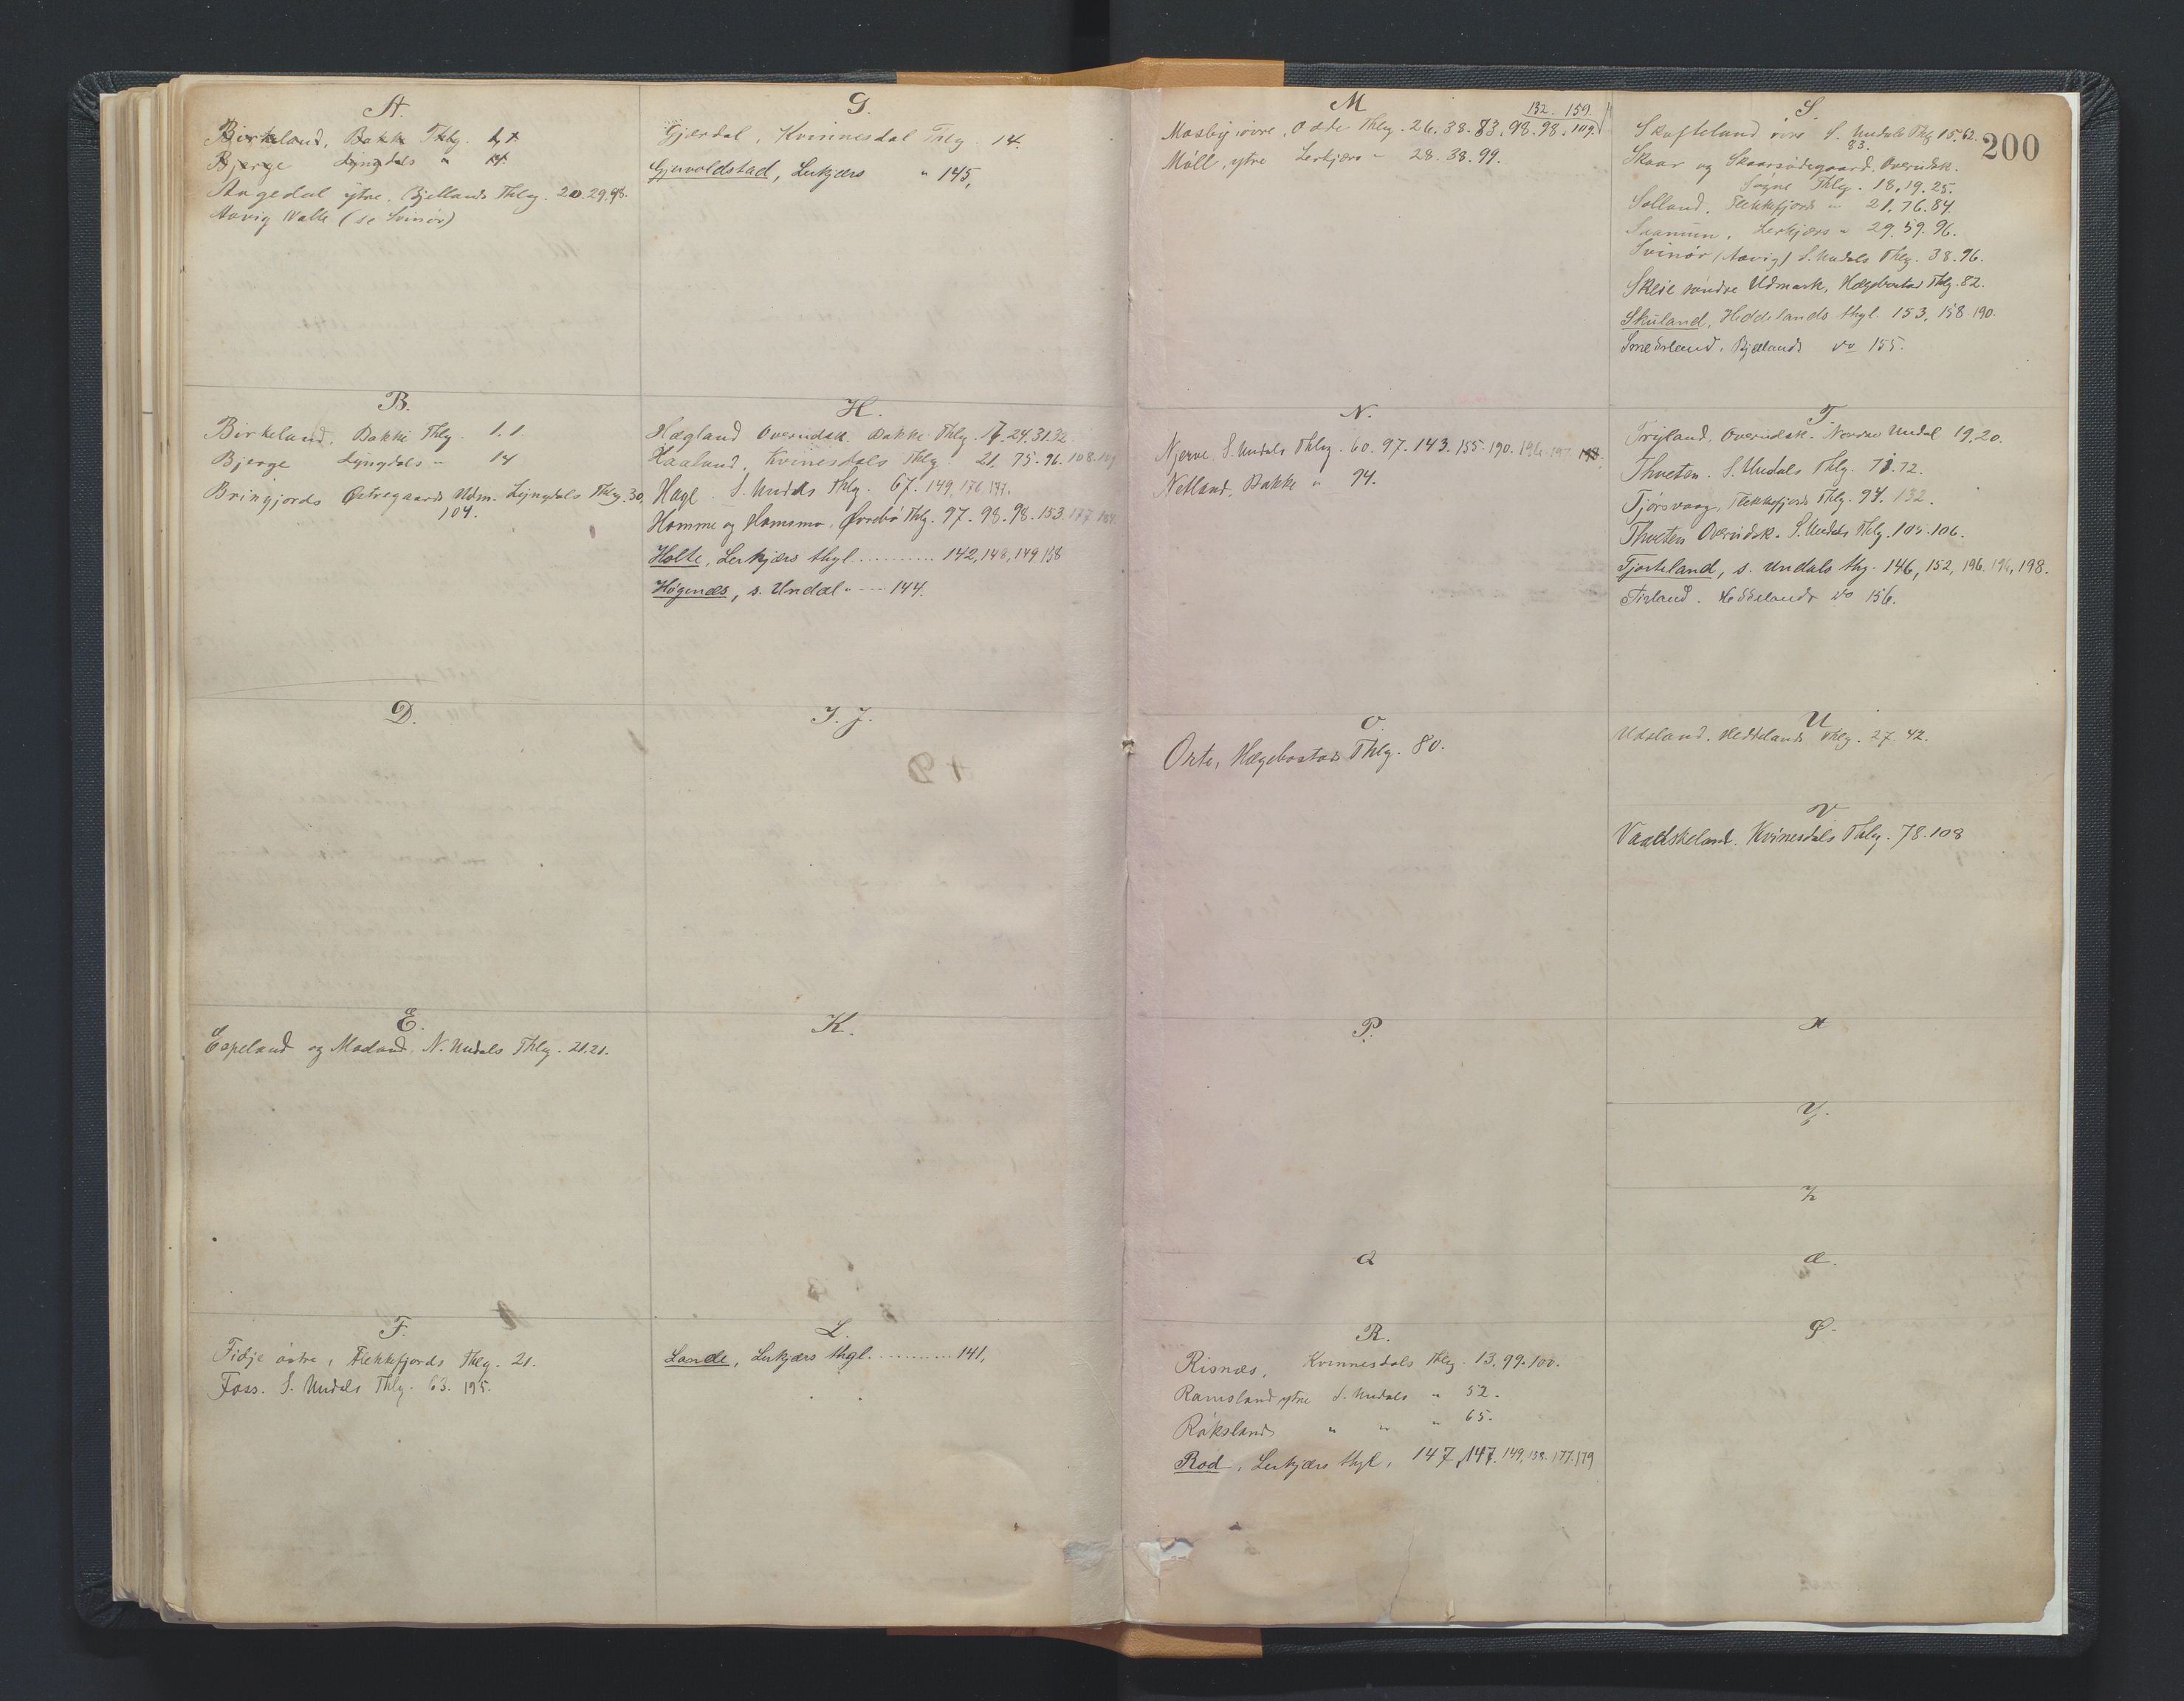 A.
Birkeland, Bakke Thlg. 1, 1
Bjerge Lyngdals " 14
Aagedal ytre. Bjellands Thlg. 20.29.98.
Aavig Valle (se Svinør)
B.
Birkeland, Bakke Thlg. 1.1
Bjerge Lyngdals " 14
Bringjords Østregaards Udm. Lyngdals Thlg. 30,
104.
D.
E.
Espeland og Moland, N. Undals Thlg. 21.21.
F.
Fidje østre, Flekkefjords Thlg. 21.
Foss. S. Undals Thlg. 63. 195.
G.
Gjærdal, Kvinnesdal Thlg. 14.
Gjervoldstad, Lerkjærs " 145,
H.
Hægland Overudsk. Bakke Thlg. 17. 24.31.32.
Haaland, Kvinesdals Thlg. 21, 75. 96. 108. 109
Hage S. Undals Thlg. 67. 149, 176, 177.
Homme og Homsmo, Øvrebø Thlg. 97. 98. 98. 153. 177
Holte, Lerkjærs thgl. .......... 142, 148, 149, 158
Høgenæs, s. Undal " --- 144.
I. J.
K.
L.
Lande, Lerkjærs thgl. .......... 141,
M
132. 159.
Mosby øvre, Odde Thlg. 26. 38. 83. 98. 98. 109.
Møll, ytre Lerkjærs " 28. 38. 99.
N.
Njerve S. Undals Thlg. 60. 97. 143. 155. 190. 196. 197. 198.
Netland, Bakke " 94.
O.
Orte, Hægebostads Thlg. 80.
P.
Q
R.
Risnæs, Kvinnesdals Thlg. 13. 99. 100.
Ramsland ytre S. Undals " 52.
Røksland " " " 65.
Rød, Lerkjærs thgl, 147, 147. 149, 158. 177. 179
S.
200
Skofteland øvre S. Undals Thlg 15. 62.
83.
Skaar og Skaarsødegaard. Overudsk.
Søgne Thlg. 18. 19. 25.
Solland, Flekkefjords " 21. 76. 84.
Saanum, Lerkjærs " 29. 59. 96.
Svinør (Aavig) S. Undals Thlg. 38. 96.
Skeie søndre Udmark, Hægebostads Thlg. 82.
Skuland, Heddelands thgl. 153, 158. 190.
Bjellands do 155.
T.
Tryland, Overudsk. Nordre Undal 19. 20.
Thveten. S. Undals Thlg. 71. 72.
Tjørsvaag, Flekkefjords Thlg. 94. 132.
Thveten Overudsk. S. Undals Thlg. 105. 106.
Tjorteland, s. Undals thg. 146, 152, 196. 196, 198.
Tisland. Heddelands do 156.
U
Udsland. Heddelands Thlg. 27. 42.
V
Vaaldskeland. Kvinesdals Thlg. 78. 108
X
Y.
Z
Æ.
Ø.